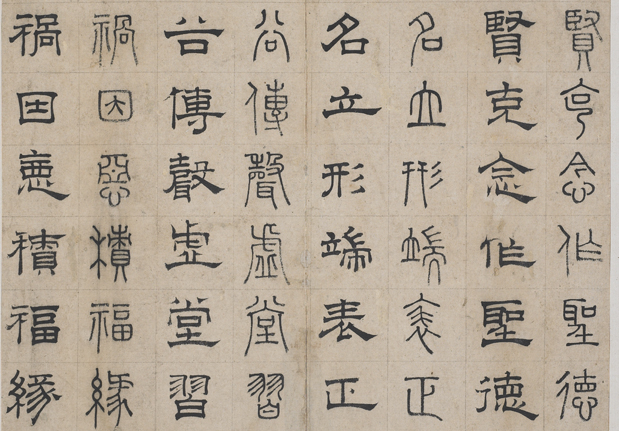 賢克念作聖德
賢克念作聖德
名立形端表正
名立形端表正
谷傳聲虛堂習
谷傳聲虛堂習
禍因惡積福緣
禍因惡積福緣